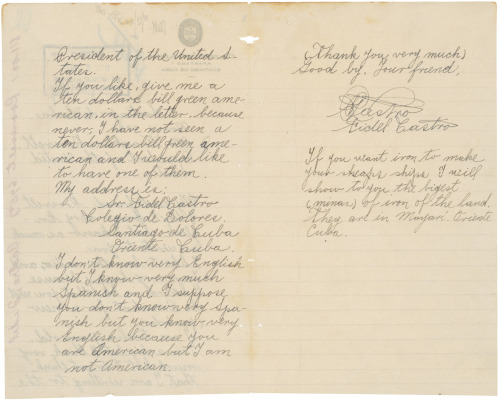 President of the United S-
tates.
If you like, give me a
ten dollars bill green ame-
rican, in the letter, because
never, I have not seen a
ten dollars bill green ame-
rican and I would like
to have one of them.
My address is:
Sr. Fidel Castro
Colegio de Dolores.
Santiago de Cuba
Oriente Cuba.
I don't know very English
but I know very much
Spanish and I suppose
you don't know very Spa-
nish but you know very
English because you
are American but I am
not American.
(Thank you very much)
Good by. Your friend,
Castro
Fidel Castro
If you want iron to make
your ships I will
show to you the bigest
(minas) of iron of the land.
They are in Mayari. Oriente
Cuba.